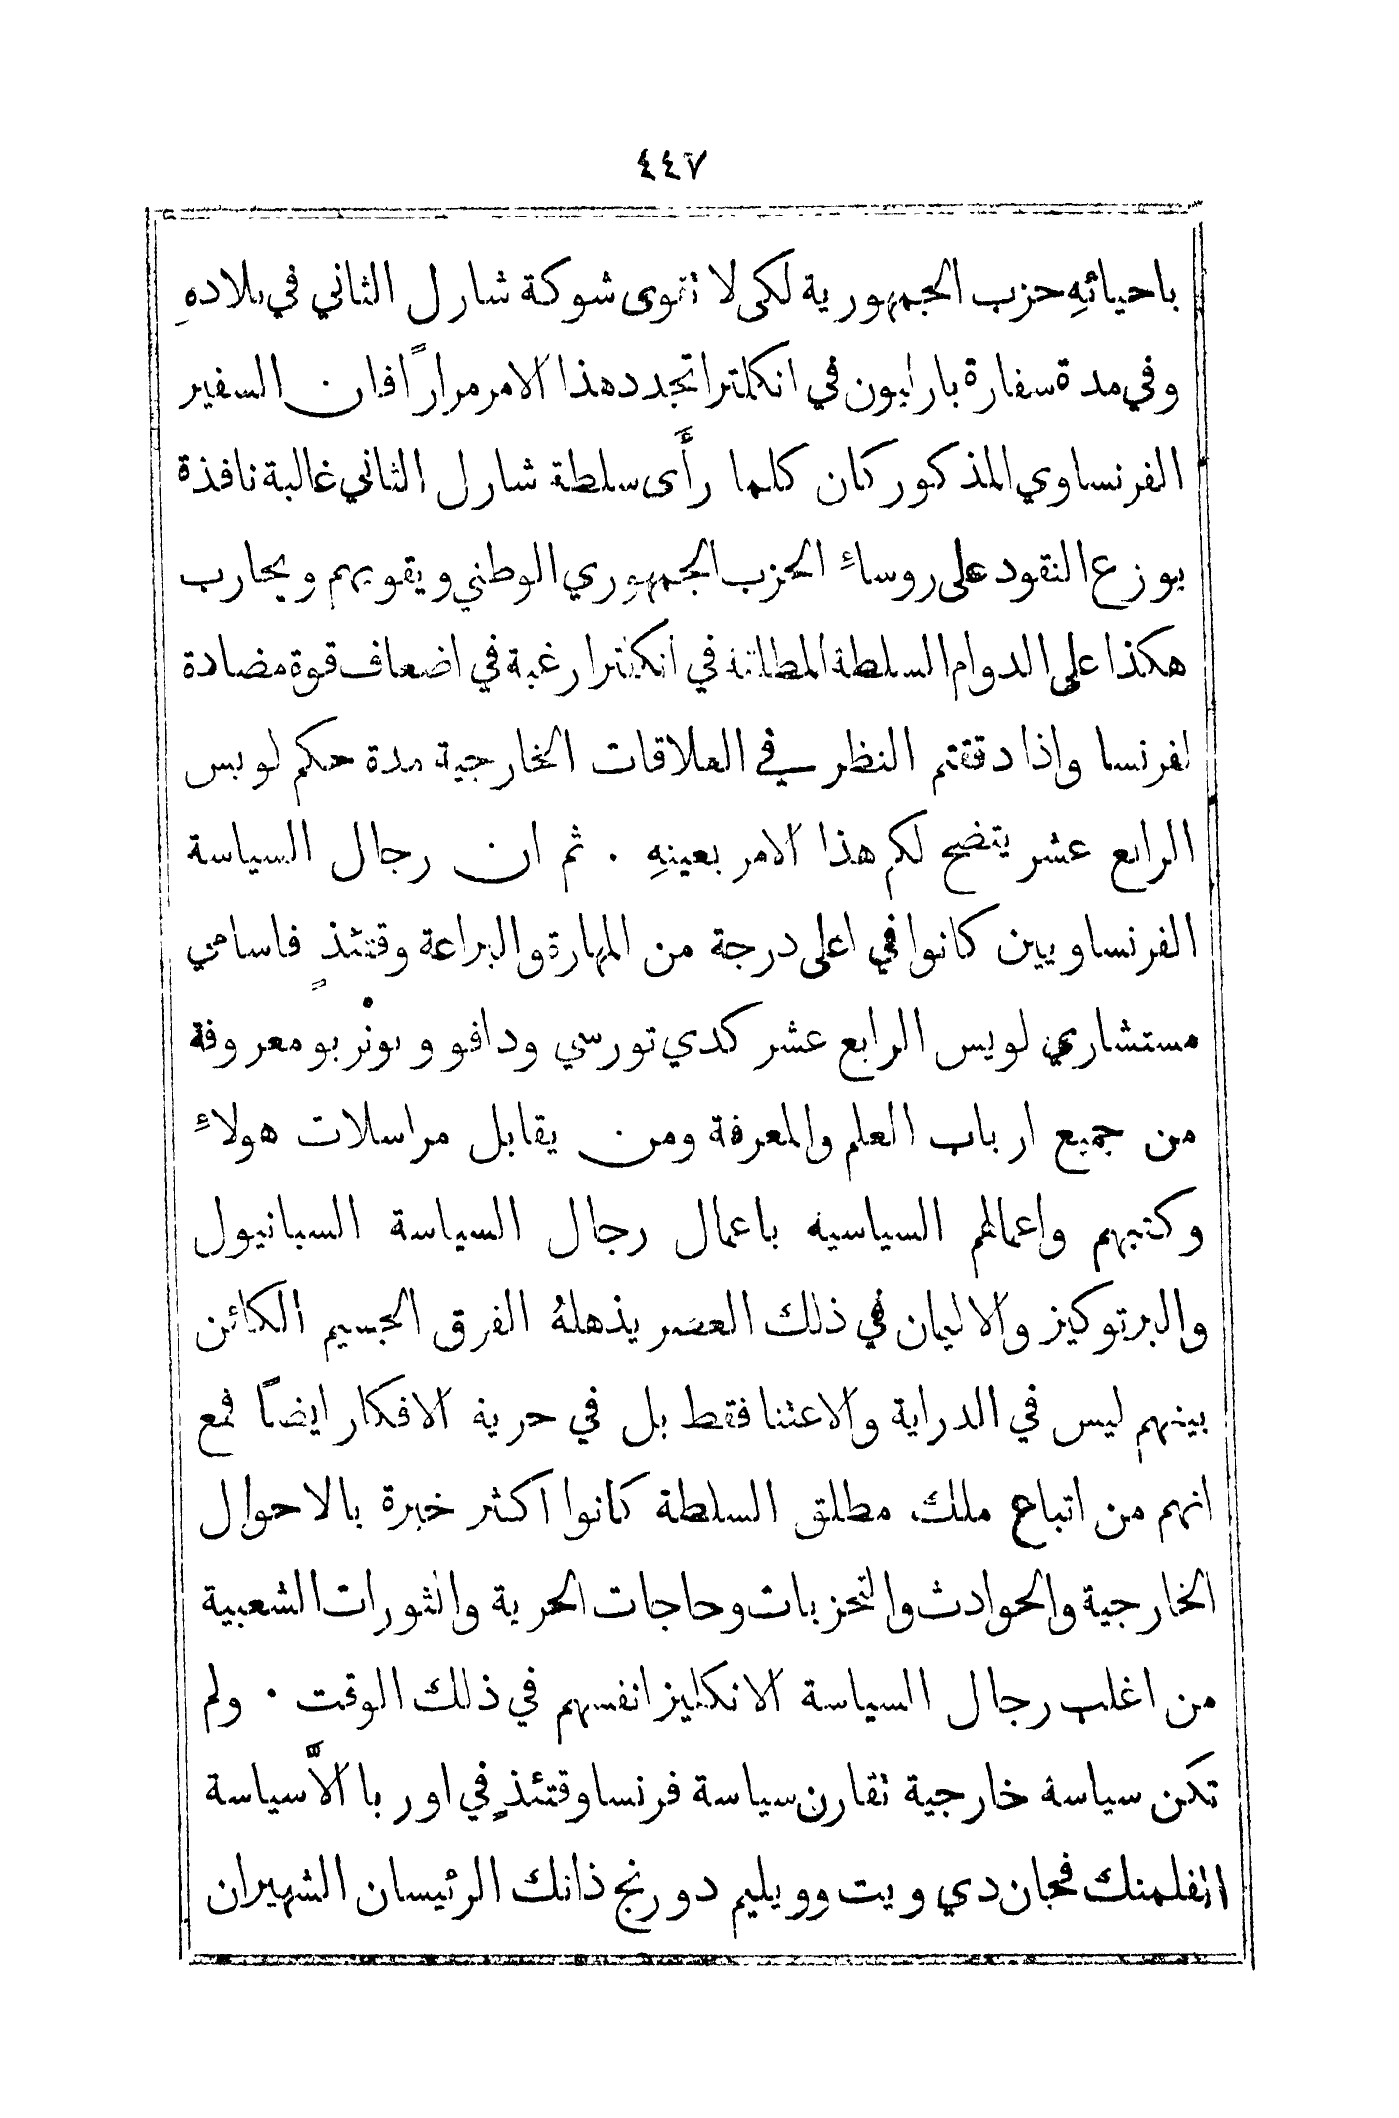 ٤٤٧
باحيائهِ حزب الجمهورية لكي لا تقوى شوكة شارل الثاني في بلادهِ
وفي مدة سفارة باراليون في انكلترا تجدد هذا الامر مرارًا فان السفير
الفرنساوي المذكور كان كلما رأَى سلطة شارل الثاني غالبة نافذة
يوزع النقود على روساءِ الحزب الجمهوري الوطني ويقويهم ويحارب
هكذا على الدوام السلطة المطلقة في انكلترا رغبة في اضعاف قوة مضادة
لفرنسا واذا دققتم النظر في العلاقات الخارجية مدة حكم لويس
الرابع عشر يتضح لكم هذا الامر بعينهِ . ثم ان رجال السياسة
الفرنساويين كانوا في اعلى درجة من المهارة والبراعة وقتئذٍ فاسامي
مستشاري لويس الرابع عشر كدي تورسي ودافو وبونْربو معروفة
من جميع ارباب العلم والمعرفة ومن يقابل مراسلات هولاءِ
وكتبهم واعمالهم السياسيه باعمال رجال السياسة السبانيول
والبرتوكيز والاليمان في ذلك العصر يذهلهُ الفرق الجسيم الكائن
بينهم ليس في الدراية والاعتنا فقط بل في حرية الافكار ايضًا فمع
انهم من اتباع ملك مطلق السلطة كانوا اكثر خبرة بالاحوال
الخارجية والحوادث والتحزبات وحاجات الحرية والثورات الشعبية
من اغلب رجال السياسة الانكليز انفسهم في ذلك الوقت . ولم
تكن سياسة خارجية تقارن سياسة فرنسا وقتئذٍ في اوربا الاَّ سياسة
الفلمنك فجان دي ويت وويليم دورنج ذانك الرئيسان الشهيران